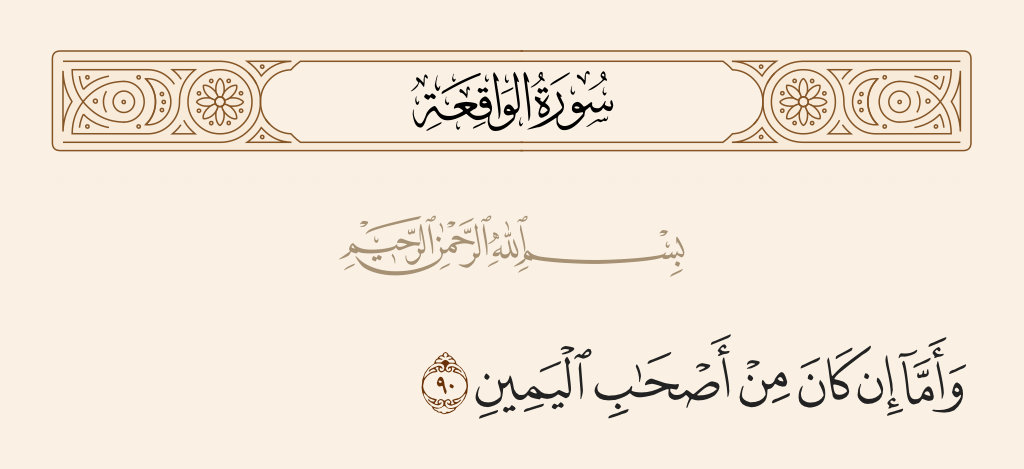 سُورَةُ الوَاقِعَةِ
بِسْمِ ٱللَّهِ ٱلرَّحْمَٰنِ ٱلرَّحِيمِ
وَأَمَّآ إِن كَانَ مِنْ أَصْحَٰبِ ٱلْيَمِينِ ٩٠